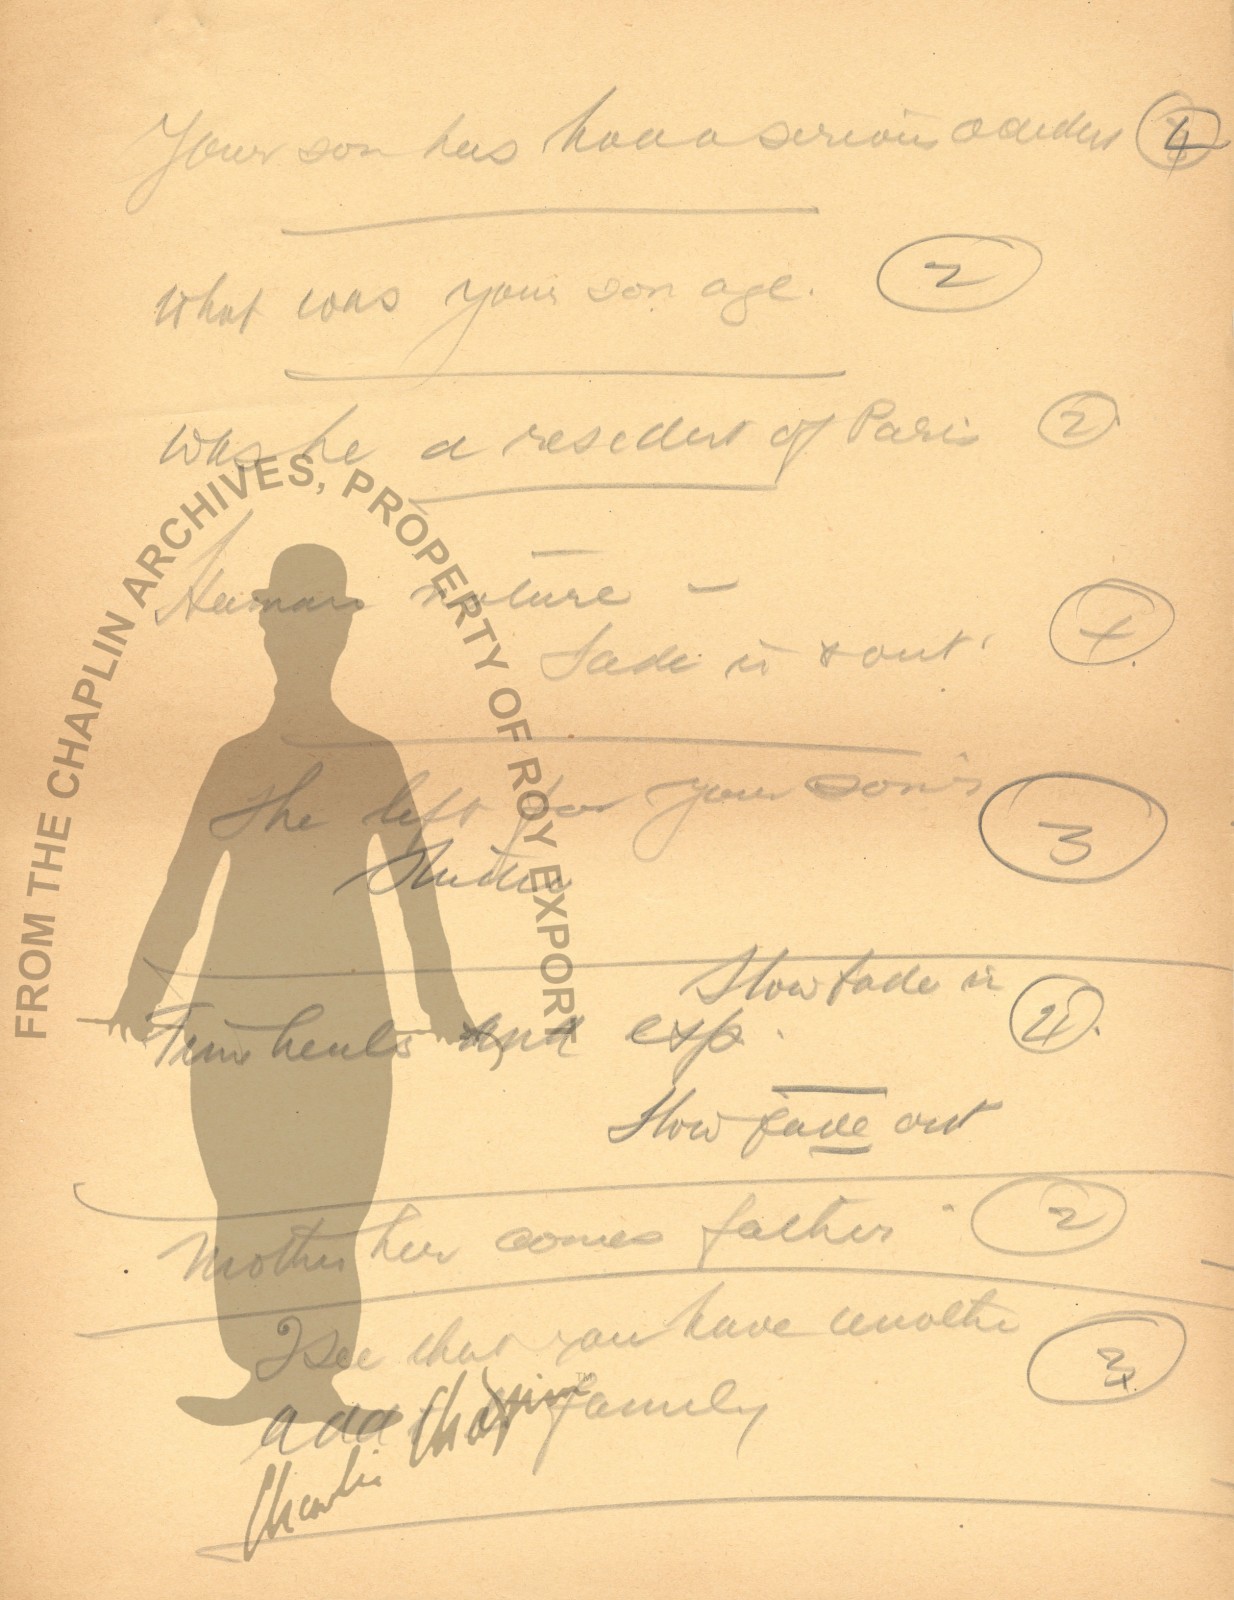 Your son has had a serious accident 4
what was your son age. 2
was he a resident of Paris 2
Human nature —
fade in & out.
She left for your son's 3
Slow fade in
Time heals and exp. 4.
Slow fade out
mother her comes father 2
I see that you have another
add family
FROM THE CHAPLIN ARCHIVES, PROPERTY OF ROY EXPORT
Charlie Chaplin
TM